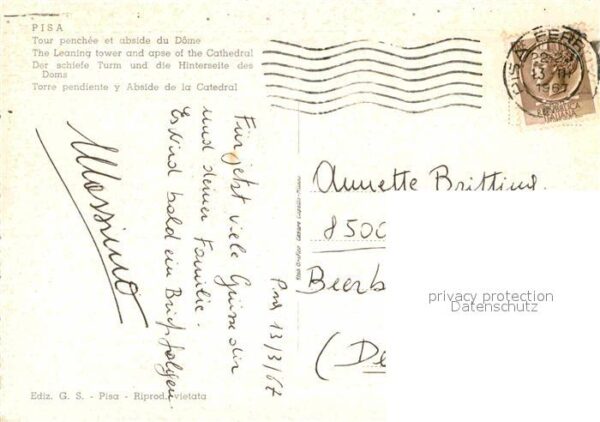 PISA
Tour penchée et abside du Dôme
The Leaning tower and apse of the Cathedral
Der schiefe Turm und die Hinterseite des
Doms
Torre pendiente y Abside de la Catedral
PISA FERR
22-23
13 III
1967
REPUBBLICA
ITALIANA
Für jetzt viele Grüsse dir
und deiner Familie.
Es wird bald ein Brief folgen.
Massimo
Pisa 13/3/67
Annette
8500
Beerb
(De
privacy protection
Datenschutz
Ediz. G. S. - Pisa - Riprod. vietata